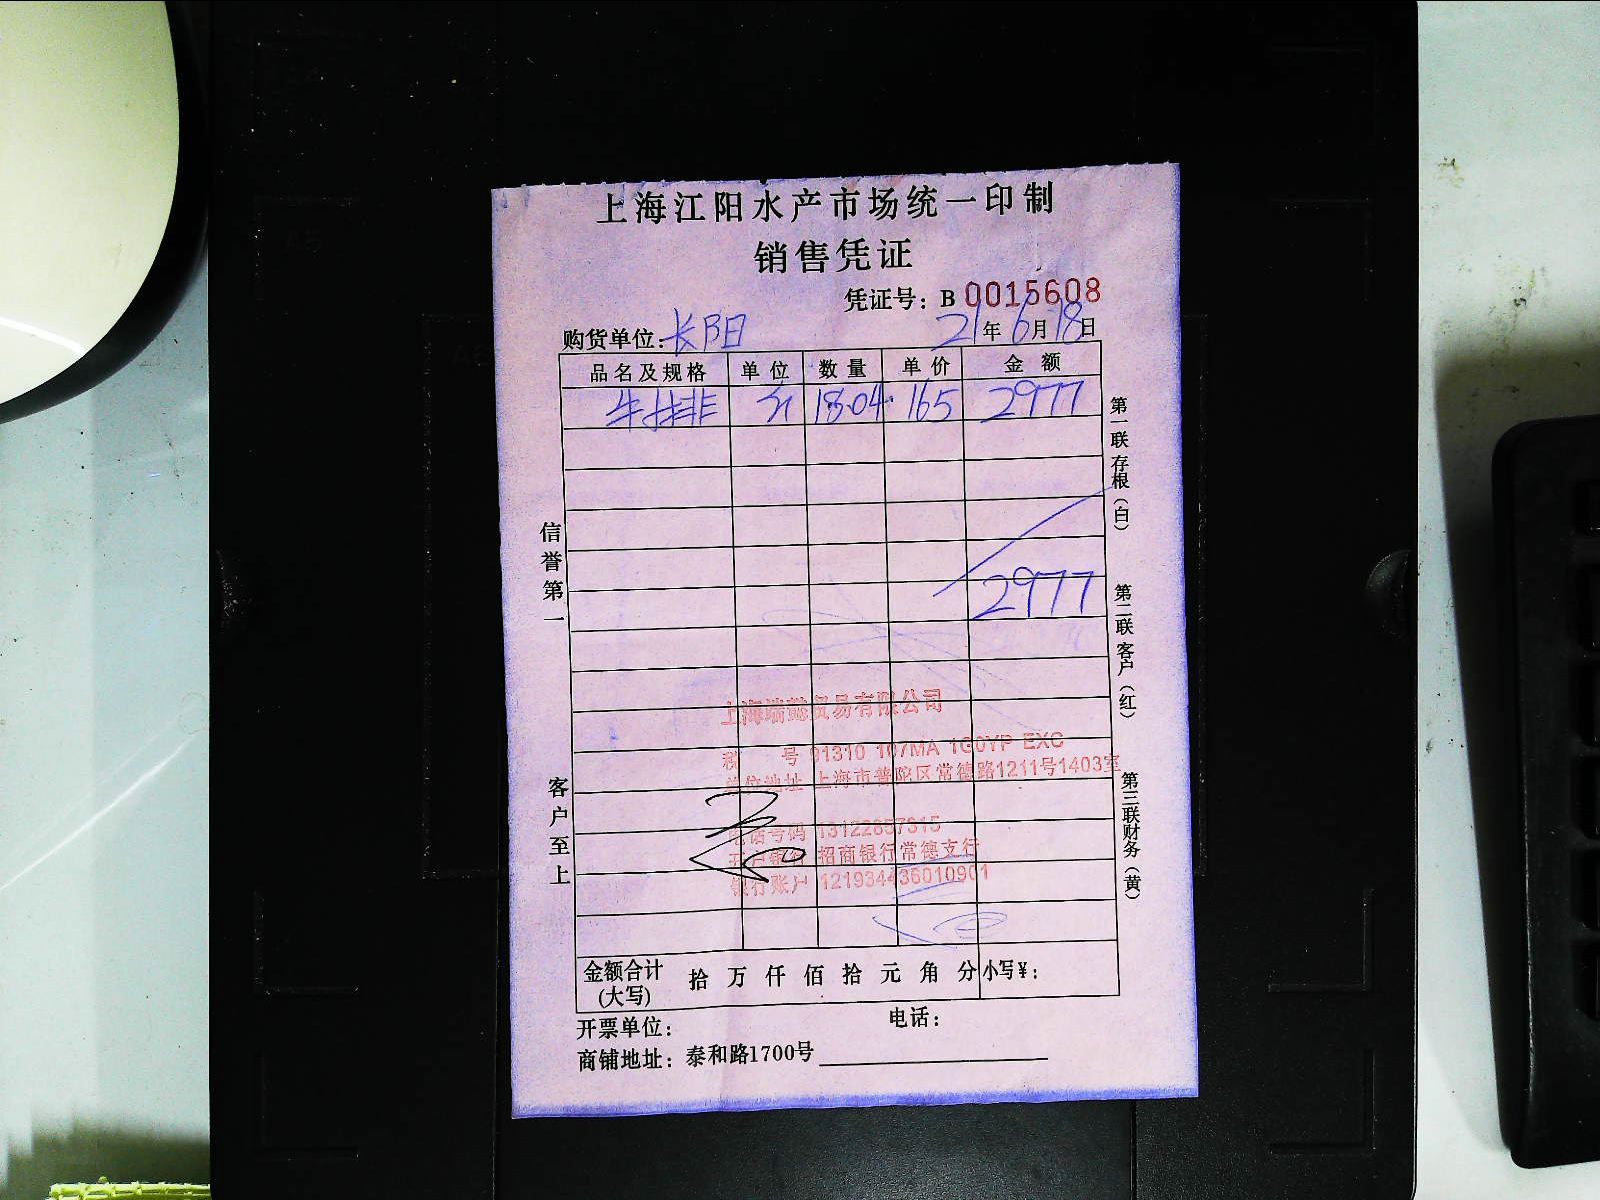 上海江阳水产市场统一印制
销售凭证
凭证号：B 0015608
购货单位：长阳 21年6月18日
品名及规格 单位 数量 单价 金额
牛排 斤 18.04 165 2977
2977
信誉第一
客户至上
第一联存根（白）
第二联客户（红）
第三联财务（黄）
上海瑞懿贸易有限公司
税 号 91310 107MA 1G0YP EXC
单位地址 上海市普陀区常德路1211号1403室
电话号码 13122857315
开户银行 招商银行常德支行
银行账户 121934436010901
金额合计(大写) 拾 万 仟 佰 拾 元 角 分 小写¥：
开票单位： 电话：
商铺地址：泰和路1700号